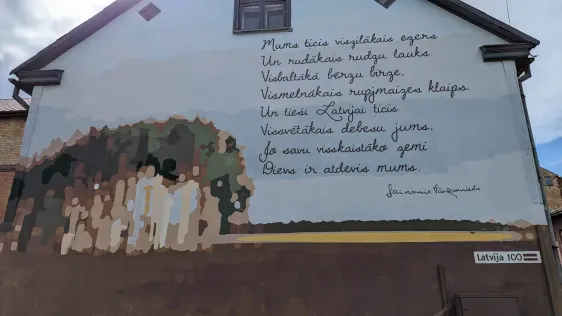 Mums ticis viszilākais ezers
Un rudākais rudzu lauks.
Visbaltākā bērzu birze,
Vismelnākais rupjmaizes klaips.
Un tieši Latvijai ticis
Vissvētākais debesu jums,
Jo savu visskaistāko zemi
Dievs ir atdevis mums.
Latvija 100